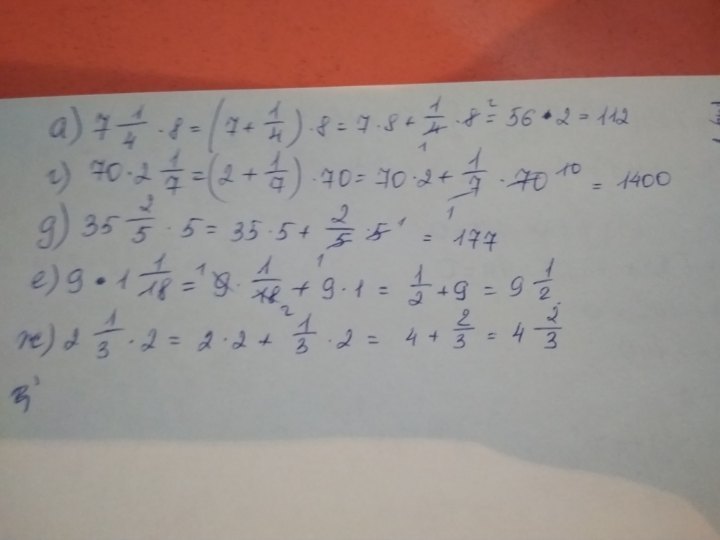 а) 7 1/4 · 8 = (7 + 1/4) · 8 = 7 · 8 + 1/4 · 8 = 56 · 2 = 112
г) 70 · 2 1/7 = (2 + 1/7) · 70 = 70 · 2 + 1/7 · 70 10 = 1400
д) 35 2/5 · 5 = 35 · 5 + 2/5 · 5 = 177
е) 9 · 1 1/18 = 9 · 1/18 + 9 · 1 = 1/2 + 9 = 9 1/2
ж) 2 1/3 · 2 = 2 · 2 + 1/3 · 2 = 4 + 2/3 = 4 2/3